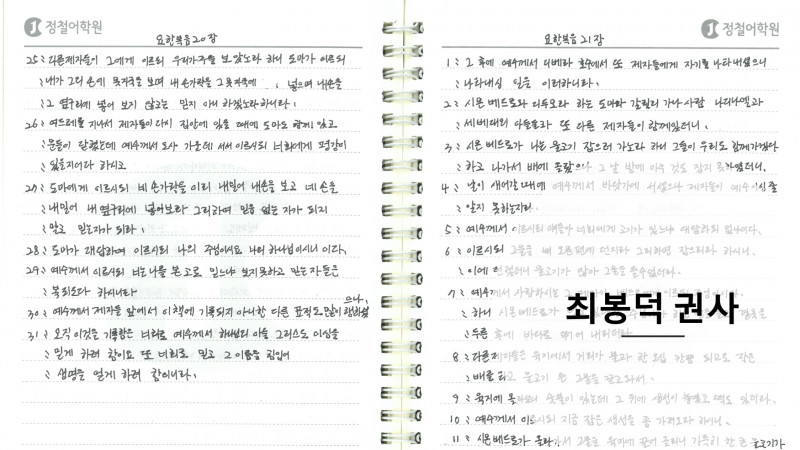 정철어학원
요한복음 20장
25 : 다른 제자들이 그에게 이르되 우리가 주를 보았노라 하니 도마가 이르되
: 내가 그의 손에 못자국을 보며 내 손가락을 그 못자국에 넣으며 내 손을
: 그 옆구리에 넣어 보지 않고는 믿지 아니 하겠노라 하니라.
26 : 여드레를 지나서 제자들이 다시 집안에 있을 때에 도마도 함께 있고
: 문들이 닫혔는데 예수께서 오사 가운데 서서 이르시되 너희에게 평강이
: 있을지어다 하시고
27 : 도마에게 이르시되 네 손가락을 이리 내밀어 내 손을 보고 네 손을
: 내밀어 내 옆구리에 넣어보라 그리하여 믿음 없는 자가 되지
: 말고 믿는 자가 되라.
28 : 도마가 대답하여 이르시되 나의 주님이시요 나의 하나님이시니이다.
29 : 예수께서 이르시되 너는 나를 본 고로 믿느냐 보지 못하고 믿는 자들은
: 복되도다 하시니라
30 : 예수께서 제자들 앞에서 이 책에 기록되지 아니한 다른 표적도 많이 행하셨
으나,
31 : 오직 이것을 기록함은 너희로 예수께서 하나님의 아들 그리스도 이심을
: 믿게 하려 함이요 또 너희로 믿고 그 이름을 힘입어
: 생명을 얻게 하려 함이니라.
정철어학원
요한복음 21장
1 : 그 후에 예수께서 디베랴 호수에서 또 제자들에게 자기를 나타내셨으니
: 나타내신 일은 이러하니라.
2 : 시몬 베드로와 디두모라 하는 도마와 갈릴리 가나 사람 나다나엘과
: 세베대의 아들들과 또 다른 제자들이 함께 있더니.
3 : 시몬 베드로가 나는 물고기 잡으러 가노라 하니 그들이 우리도 함께 가겠다
: 하고 나가서 배에 올랐으나 그 날 밤에 아무 것도 잡지 못하였더니.
4 : 날이 새어갈 때에 예수께서 바닷가에 서셨으나 제자들이 예수이신 줄
: 알지 못하는지라
5 : 예수께서 이르시되 얘들아 너희에게 고기가 있느냐 대답하되 없나이다.
6 : 이르시되 그물을 배 오른편에 던지라 그리하면 잡으리라 하시니.
: 이에 던졌더니 물고기가 많아 그물을 들 수 없더라.
7 : 예수께서 사랑하시는 그
: 하니 시몬 베드로가
: 두른 후에 바다로 뛰어 내리더라.
최봉덕 권사
8 : 다른 제자들은 육지에서 거리가 불과 한 오십 칸쯤 되므로 작은
: 배를 타고 물고기 든 그물을 끌고 와서.
9 : 육지에 올라보니 숯불이 있는데 그 위에 생선이 놓였고 떡도 있더라.
10 : 예수께서 이르시되 지금 잡은 생선을 좀 가져오라 하시니.
11 : 시몬 베드로가 올라가서 그물을 육지에 끌어 올리니 가득히 찬 큰 물고기가